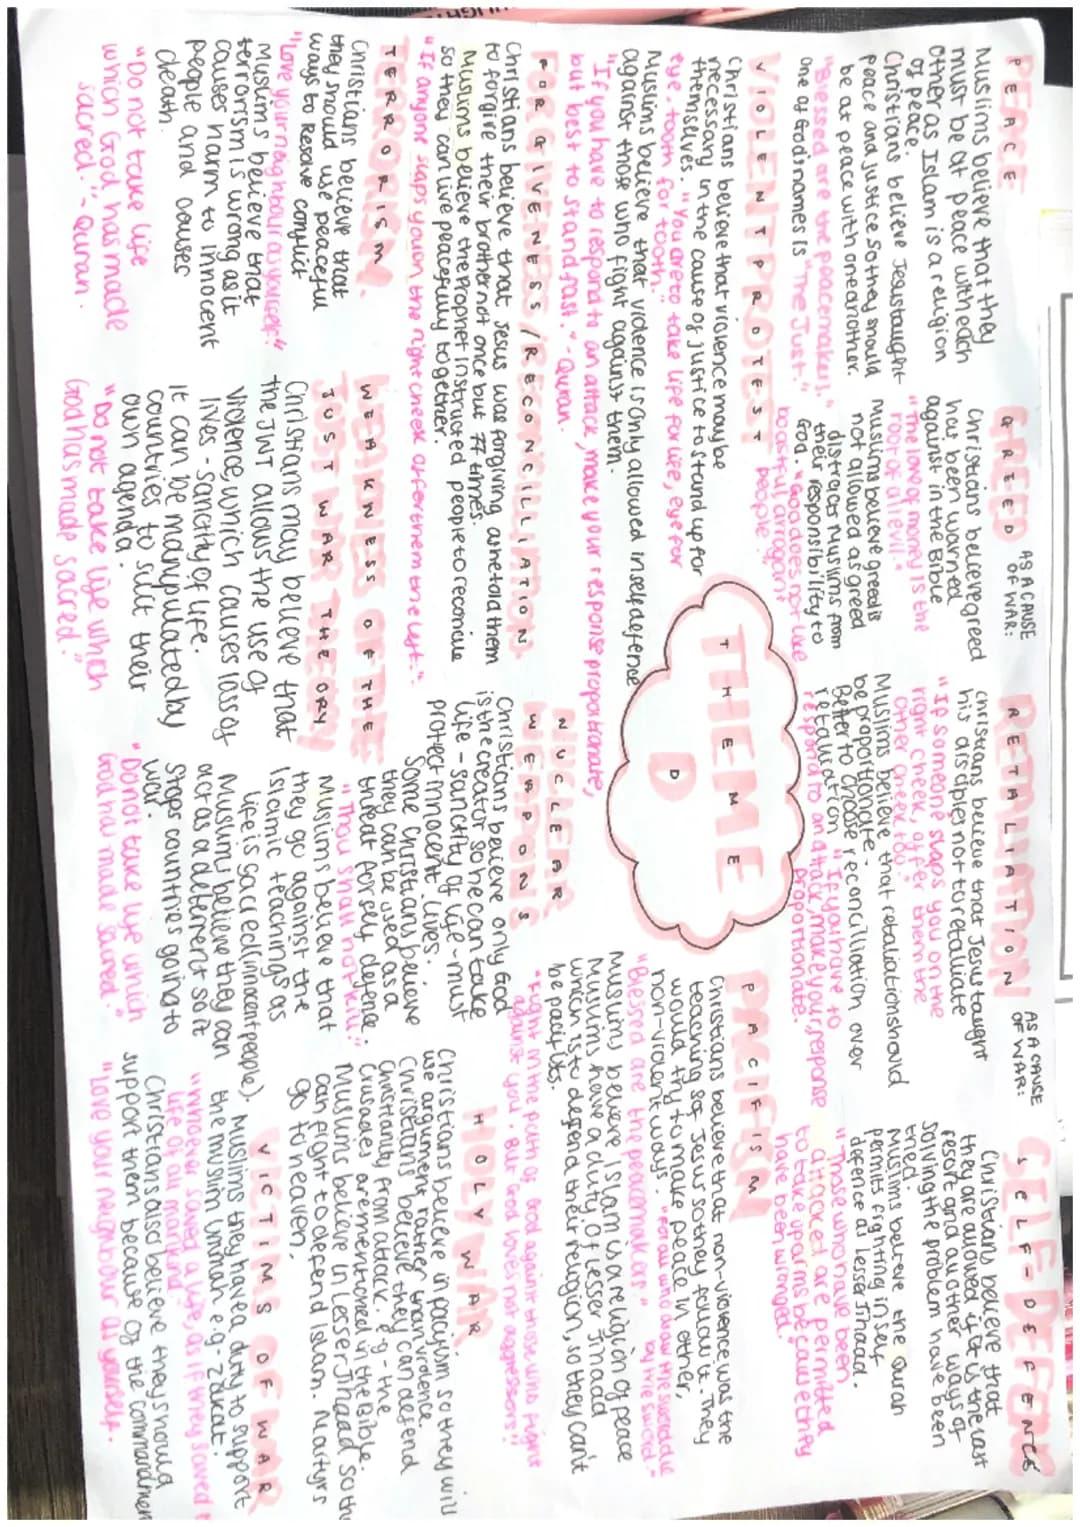 PEACE
Muslims believe that they
must be at peace with each
other as Islam is a religion
of peace.
Christians believe Jesus taught
peace and justice so they should
be at peace with one another.
"Blessed are the peacemakers."
one of God names is "The Just."
GREED AS A CAUSE
OF WAR:
Christians believe greed
has been warned
against in the Bible
"The love of money is the
root of all evil."
Muslims believe greed is
not allowed as greed
distracts Muslims from
their responsibility to
God. "God does not like
boastful arrogant
people."
RETALIATION AS A CAUSE
OF WAR:
Christians believe that Jesus taught
his disciples not to retaliate
"If someone slaps you on the
right cheek, offer them the
other cheek too."
Muslims believe that retaliation should
be proportionate.
Better to choose reconcillation over
retaliation "If you have to
respond to an attack, make your response
proportionate.
SELF-DEFENCE
Christians believe that
they are allowed if it is the last
resort and all other ways of
solving the problem have been
tried.
Muslims believe the Quran
permits fighting in self
defence as lesser Jihad.
"Those who have been
attacked are permitted
to take up arms because they
have been wronged."
VIOLENT PROTEST
Christians believe that violence may be
necessary in the cause of justice to stand up for
themselves. "You are to take life for life, eye for
eye, tooth for tooth."
Muslims believe that violence is only allowed in self defence
against those who fight against them.
"If you have to respond to an attack, make your response proportionate,
but best to stand fast." - Quran.
THEME
D
PACIFISM
Christians believe that non-violence was the
teaching of Jesus so they follow it. They
would try to make peace in other,
non-violent ways. "For all who draw the sword die
by the sword."
"Blessed are the peacemakers"
Muslims believe Islam is a religion of peace
Muslims have a duty of lesser Jihad
which is to defend their religion, so they can't
be pacifists.
FORGIVENESS/RECONCILLIATION
Christians believe that Jesus was forgiving and told them
to forgive their brother not once but 77 times.
Muslims believe the Prophet instructed people to reconcile
so they can live peacefully together.
"If anyone slaps you on the right cheek offer them the left."
NUCLEAR
WEAPONS
Christians believe only God
is the creator so he can take
life - sanctity of life - must
protect innocent lives.
Some Christians believe
they can be used as a
threat for self defence.
"Thou shall not kill"
Muslims believe that
they go against the
Islamic teachings as
life is sacred (innocent people).
Muslims believe they can
act as a deterent so it
stops countries going to
war.
"Do not take life which
God has made sacred."
HOLY WAR
"Fight in the path of God against those who fight
against you. But God loves not aggressors!!
Christians believe in pacifism so they will
use argument rather than violence.
Christians believe they can defend
Christianity from attack. e.g - the
Crusades are mentioned in the Bible.
Muslims believe in Lesser Jihad so the
can fight to defend Islam. Martyrs
go to heaven.
TERRORISM.
Christians believe that
they should use peaceful
ways to resolve conflict
"Love your neighbour as yourself."
Muslims believe that
terrorism is wrong as it
causes harm to innocent
people and causes
death.
"Do not take life
which God has made
sacred." - Quran.
WEAKNESS OF THE
JUST WAR THEORY
Christians may believe that
the JWT allows the use of
violence, which causes loss of
lives - sanctity of life.
It can be manipulated by
countries to suit their
own agenda.
"Do not take life which
God has made sacred."
VICTIMS OF WAR
Muslims they have a duty to support
the muslim Ummah e.g - zakat.
"whoever saved a life, as if they saved
life of all mankind"
Christians also believe they should
support them because of the commandmen
"Love your neighbour as yourself.